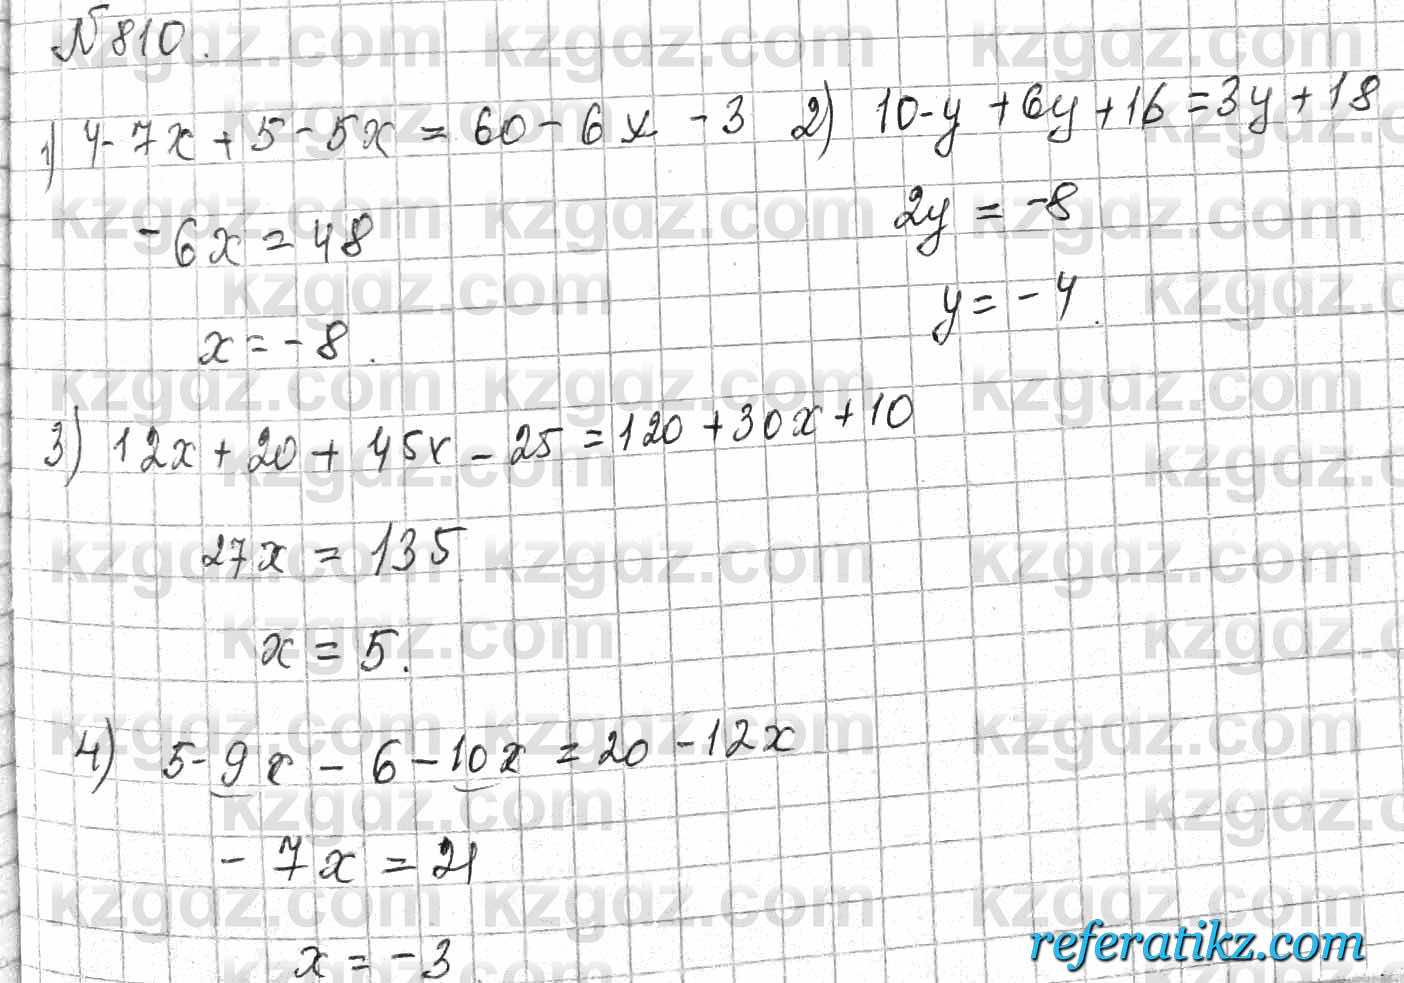 № 810.
1) 4-7x+5-5x=60-6x-3
-6x=48
x=-8.
2) 10-y+6y+16=3y+18
2y=-8
y=-4.
3) 12x+20+45x-25=120+30x+10
27x=135
x=5.
4) 5-9x-6-10x=20-12x
-7x=21
x=-3
kzgdz.com
referatikz.com